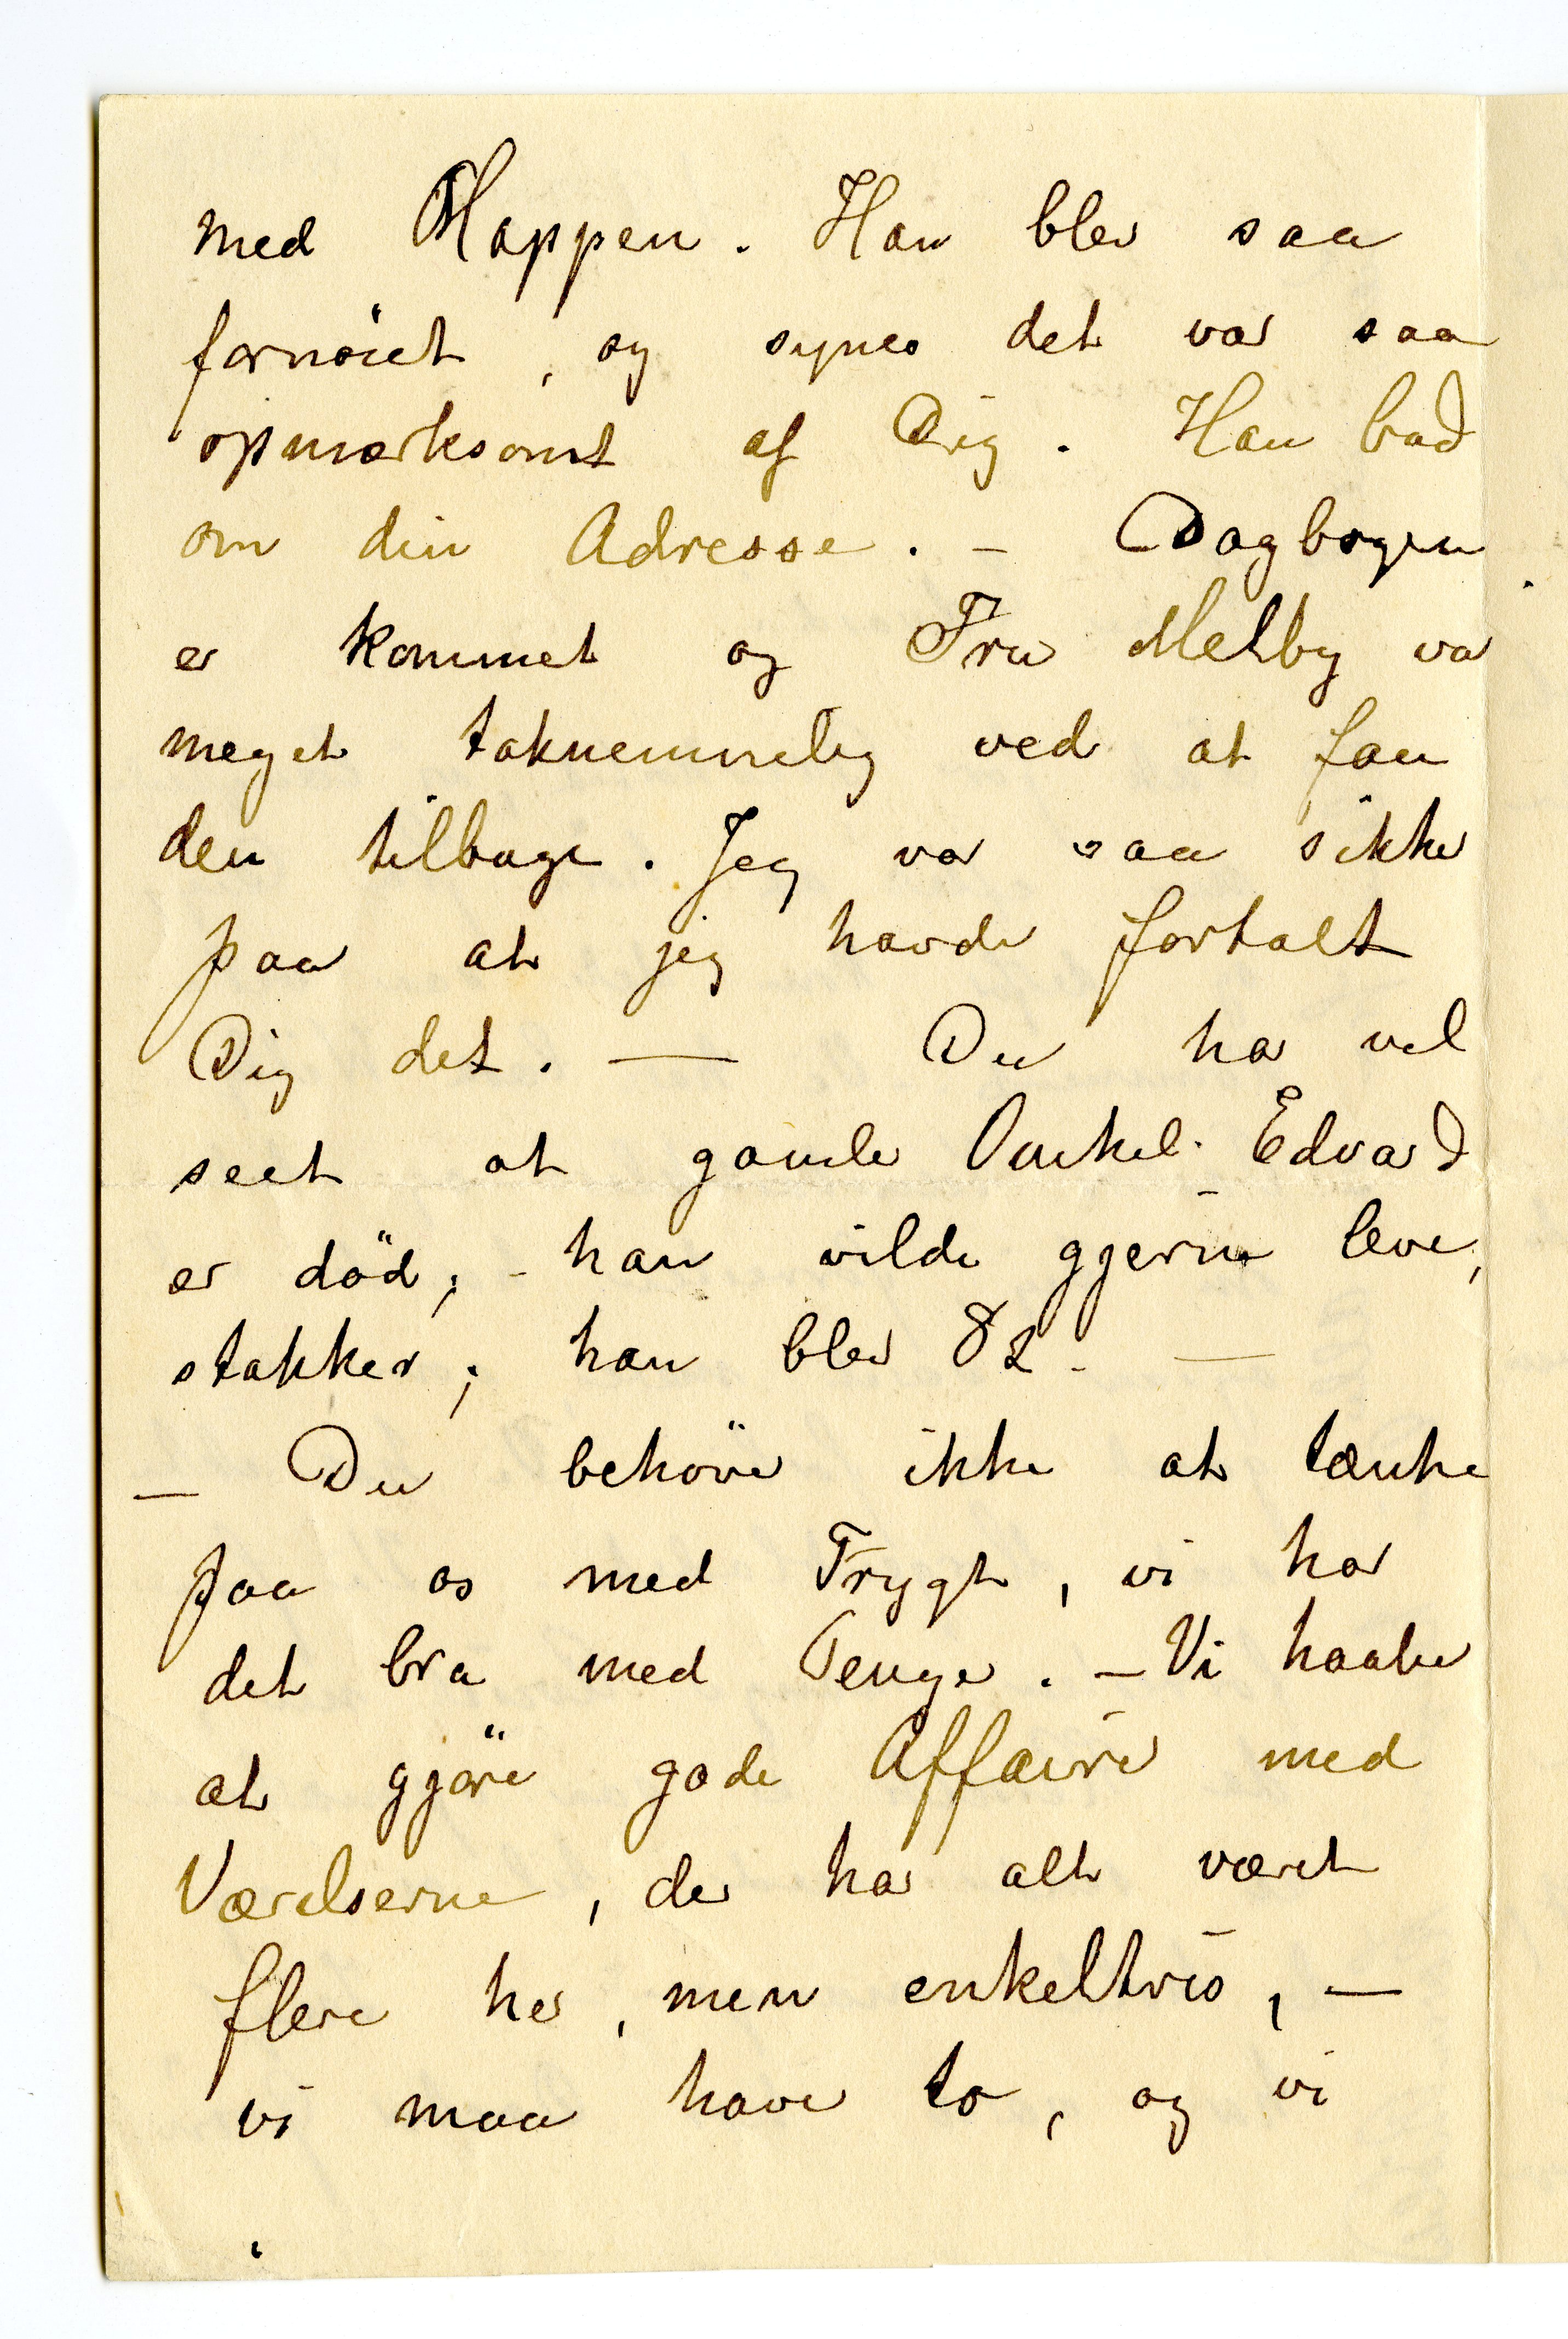 med Mappen. Han blev saa
fornöiet, og synes det var saa
opmærksomt af Dig. Han bad
om din Adresse. – Dagbogen
er kommet og Fru Meltby var
meget taknemmelig ved at faa
den tilbage. Jeg var saa sikker
paa at jeg havde fortalt
Dig det. — Du har vel
seet at gamle Onkel Edvard
er död; – han vilde gjerne leve,
stakker; han blev 82. —
— Du behöver ikke at tænke
paa os med Frygt, vi har
det bra med Penge. – Vi haaber
at gjöre gode Affairer med
Værelserne, der har alt været
flere her, men enkeltvis, —
vi maa have to, og vi